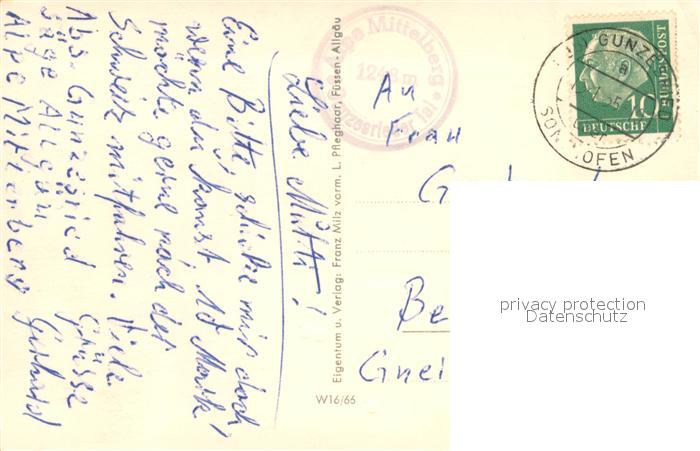 Liebe Mutti!
Eine Bitte, schicke mir doch
wenn du kannst 10 Mark!
möchte gerne nach der
Schweiz mitfahren. Viele
Grüsse
Abs. Gunzesried
Säge Allgäu
Alpe Mittelberg
Alpe Mittelberg
1248 m
Eigentum u. Verlag: Franz Milz vorm. L. Pfleghaar, Füssen-Allgäu
W16/66
An
Frau
Be
Gnei
GUNZE
SON OFEN
10
DEUTSCHE
BUNDESPOST
privacy protection
Datenschutz